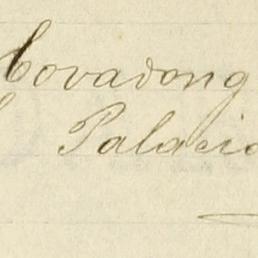 Covadong
Palacio